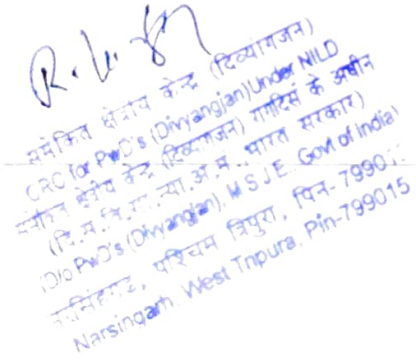 समेकित क्षेत्रीय केन्द्र (दिव्यांगजन)
CRC for PwD's (Divyangjan)Under NILD
क्षेत्रीय केन्द्र (दिव्यांगजन) के अधीन
भारत सरकार)
(D/o PwD's (Divyangjan), M S J E. Govt of India)
पश्चिम त्रिपुरा, पिन- 7990
Narsingarh, West Tripura, Pin-799015